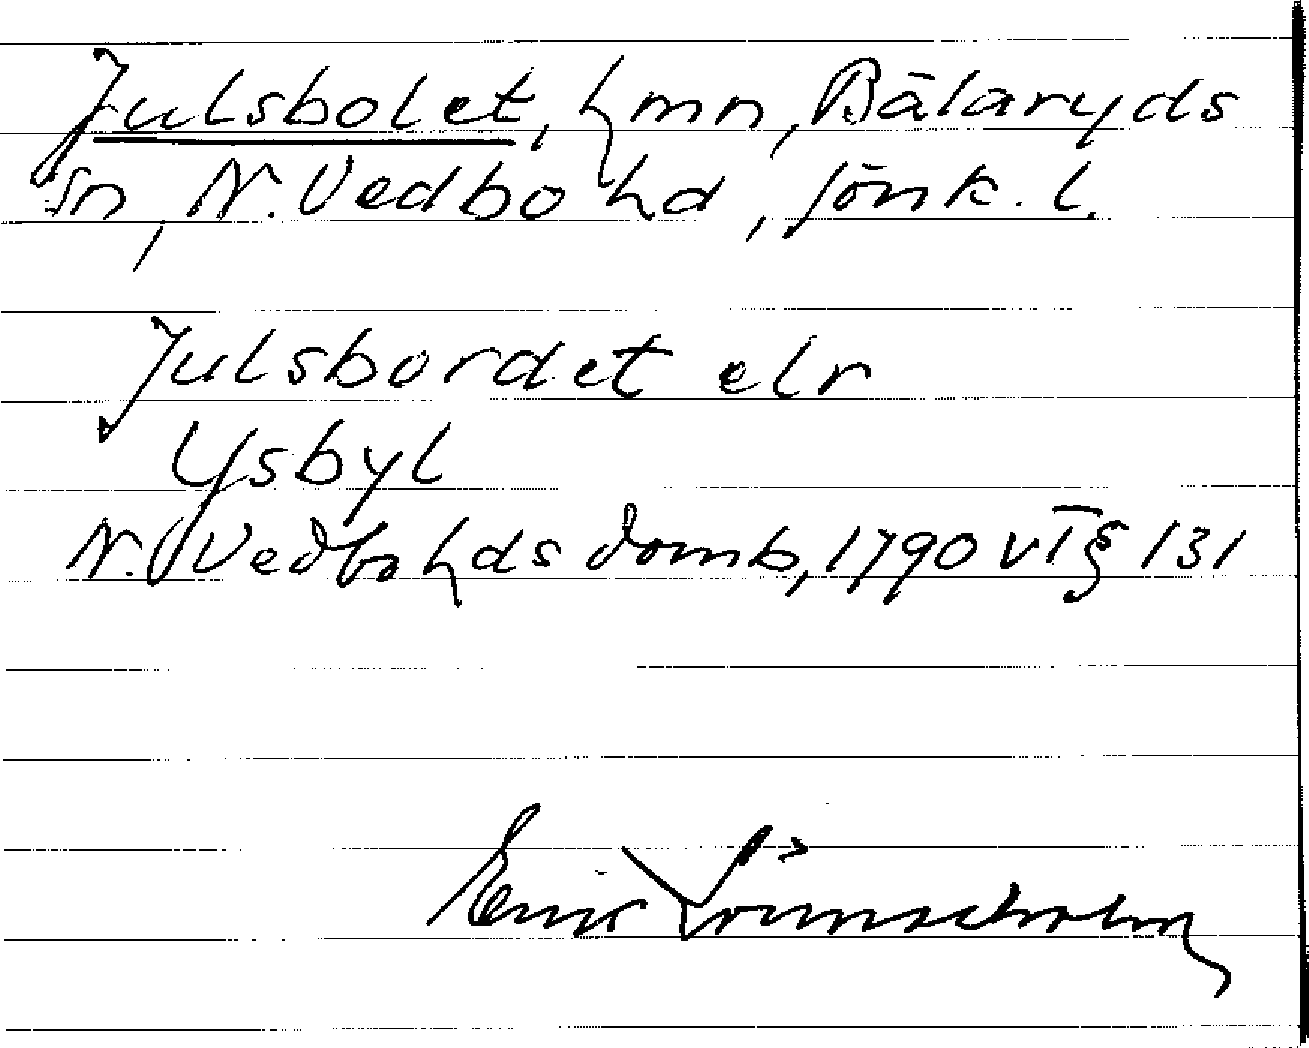 Julsbolet, hmn, Bälaryds
sn, N. Vedbo hd, Jönk. l.
Julsbordet elr
Ysbyl
N. Vedbo hds domb, 1790 VT § 131